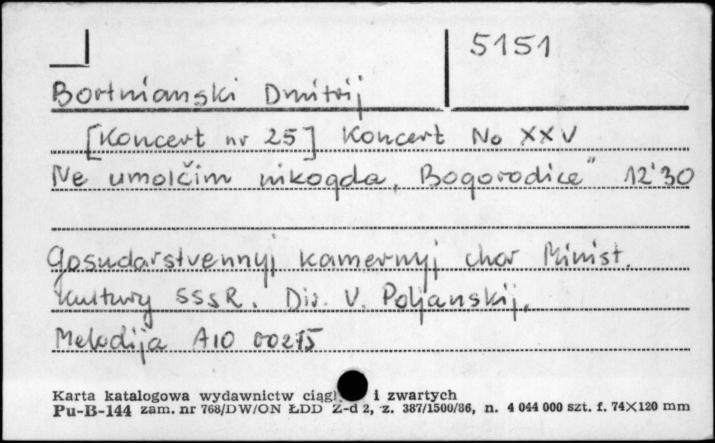 5151
Bortnianski Dmitrij
[Koncert nr 25] Koncert No XXV
Ne umolčim nikogda, Bogorodice" 12'30
Gosudarstvennyj kamernyj chor Minist.
Kultury SSSR. Dir. V. Poljanskij.
Melodija A10 00275
Karta katalogowa wydawnictw ciągł i zwartych
Pu-B-144 zam. nr 768/DW/ON ŁDD Z-d 2, z. 387/1500/86, n. 4 044 000 szt. f. 74×120 mm